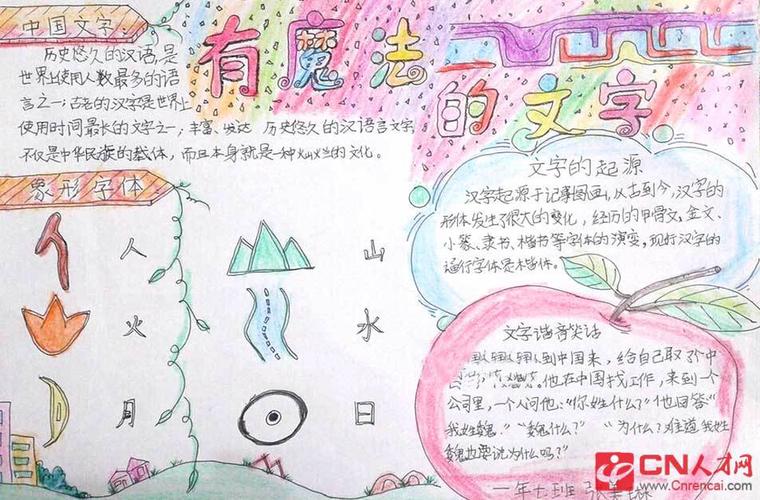 中国文字:
历史悠久的汉语,是
世界上使用人数最多的语
言之一;古老的汉字是世界上
使用时间最长的文字之一;丰富、发达 历史悠久的汉语言文字
不仅是中华民族的载体,而且本身就是一种灿烂的文化。
有魔法
的文字
象形字体
人
山
火
水
月
日
文字的起源
汉字起源于记事图画,从古到今,汉字的
形体发生了很大的变化,经历的甲骨文,金文、
小篆、隶书、楷书等字体的演变,现行汉字的
通行字体是楷体。
文字谐音笑话
到中国来,给自己取了个中
他在中国找工作,来到一个
公司里,一个人问他:“你姓什么?”他回答“
我姓魏.”“魏什么?”“为什么?难道我姓
魏也要说为什么吗?”
一年七班 张
CN人才网
Cnrencai.com